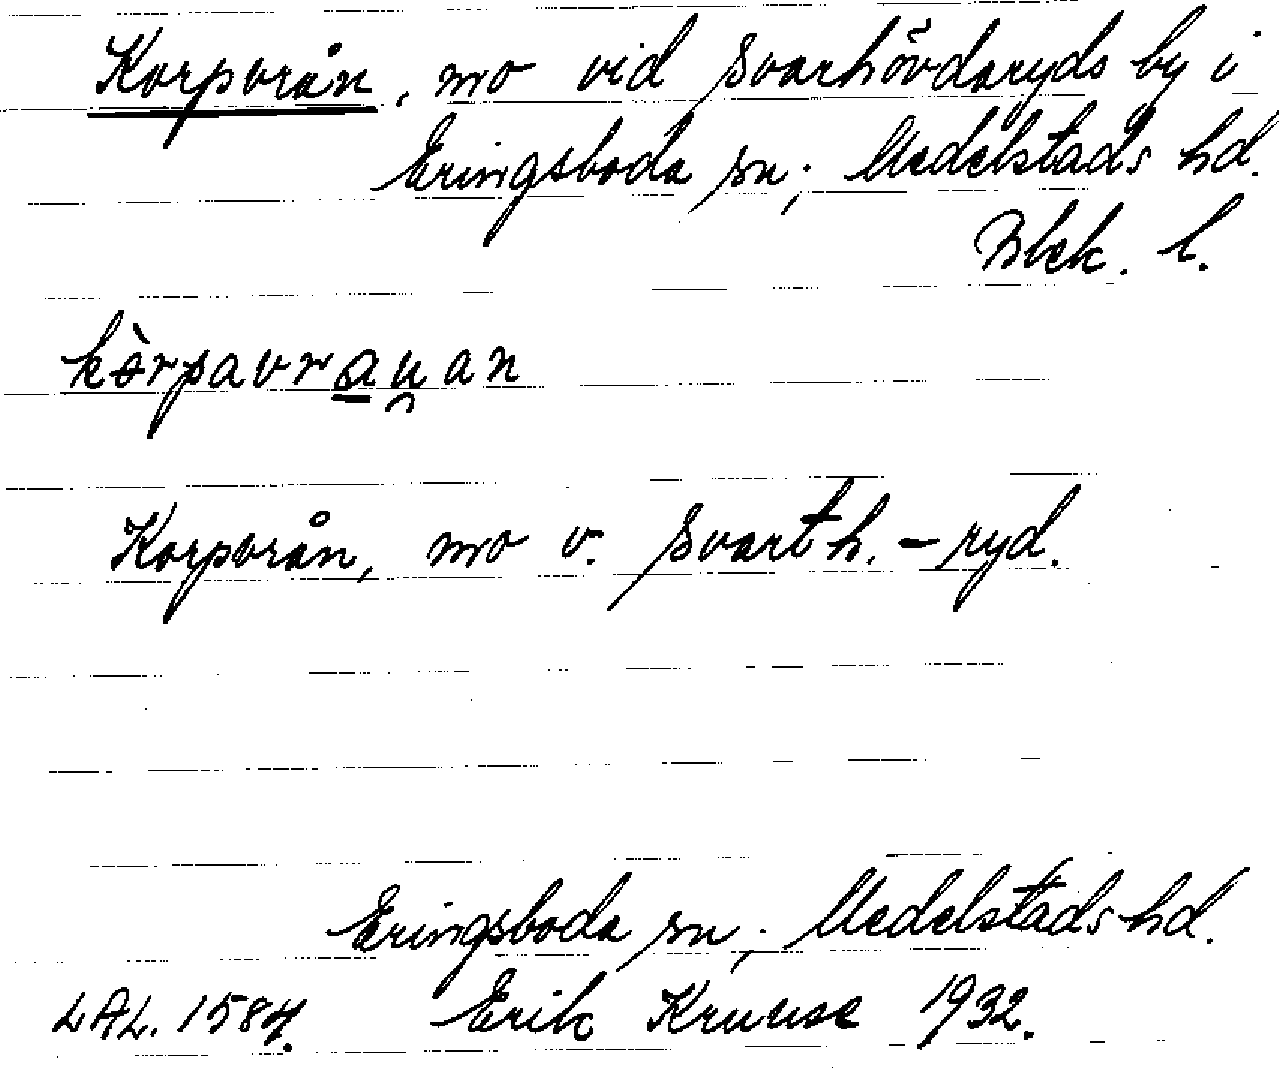 Korpvrån, mo vid Svarhövdaryds by i
Eringsboda sn; Medelstads hd.
Blek. l.
kòrpavra̲u̯an
Korpvrån, mo v. Svarth.-ryd.
Eringsboda sn; Medelstads hd.
LAL. 1584. Erik Kruuse 1932.